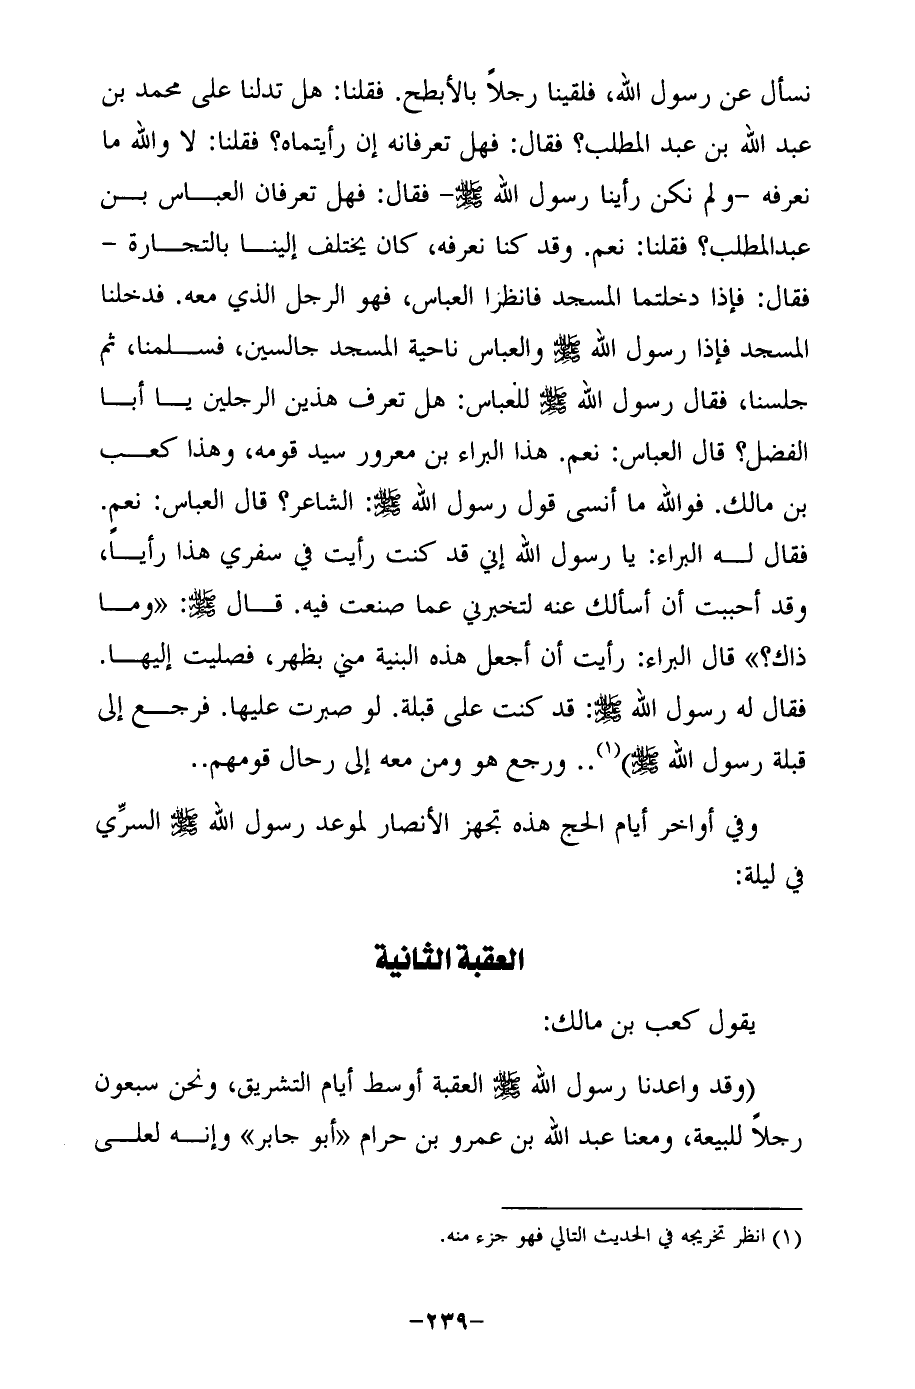 نسأل عن رسول الله، فلقينا رجلاً بالأبطح. فقلنا: هل تدلنا على محمد بن
عبد الله بن عبد المطلب؟ فقال: فهل تعرفانه إن رأيتماه؟ فقلنا: لا والله ما
نعرفه -و لم نكن رأينا رسول الله ﷺ- فقال: فهل تعرفان العبـــاس بـــن
عبدالمطلب؟ فقلنا: نعم. وقد كنا نعرفه، كان يختلف إلينـــا بالتجـــارة -
فقال: فإذا دخلتما المسجد فانظرا العباس، فهو الرجل الذي معه. فدخلنا
المسجد فإذا رسول الله ﷺ والعباس ناحية المسجد جالسين، فســـلمنا، ثم
جلسنا، فقال رسول الله ﷺ للعباس: هل تعرف هذين الرجلين يـــا أبـــا
الفضل؟ قال العباس: نعم. هذا البراء بن معرور سيد قومه، وهذا كعـــب
بن مالك. فوالله ما أنسى قول رسول الله ﷺ: الشاعر؟ قال العباس: نعم.
فقال لـــه البراء: يا رسول الله إني قد كنت رأيت في سفري هذا رأيـــاً،
وقد أحببت أن أسألك عنه لتخبرني عما صنعت فيه. قـــال ﷺ: «ومـــا
ذاك؟» قال البراء: رأيت أن أجعل هذه البنية مني بظهر، فصليت إليهـــا.
فقال له رسول الله ﷺ: قد كنت على قبلة. لو صبرت عليها. فرجـــع إلى
قبلة رسول الله ﷺ)(١).. ورجع هو ومن معه إلى رحال قومهم..
وفي أواخر أيام الحج هذه تجهز الأنصار لموعد رسول الله ﷺ السرِّي
في ليلة:
العقبة الثانية
يقول كعب بن مالك:
(وقد واعدنا رسول الله ﷺ العقبة أوسط أيام التشريق، ونحن سبعون
رجلاً للبيعة، ومعنا عبد الله بن عمرو بن حرام «أبو جابر» وإنـــه لعلـــى
(١) انظر تخريجه في الحديث التالي فهو جزء منه.
-٢٣٩-